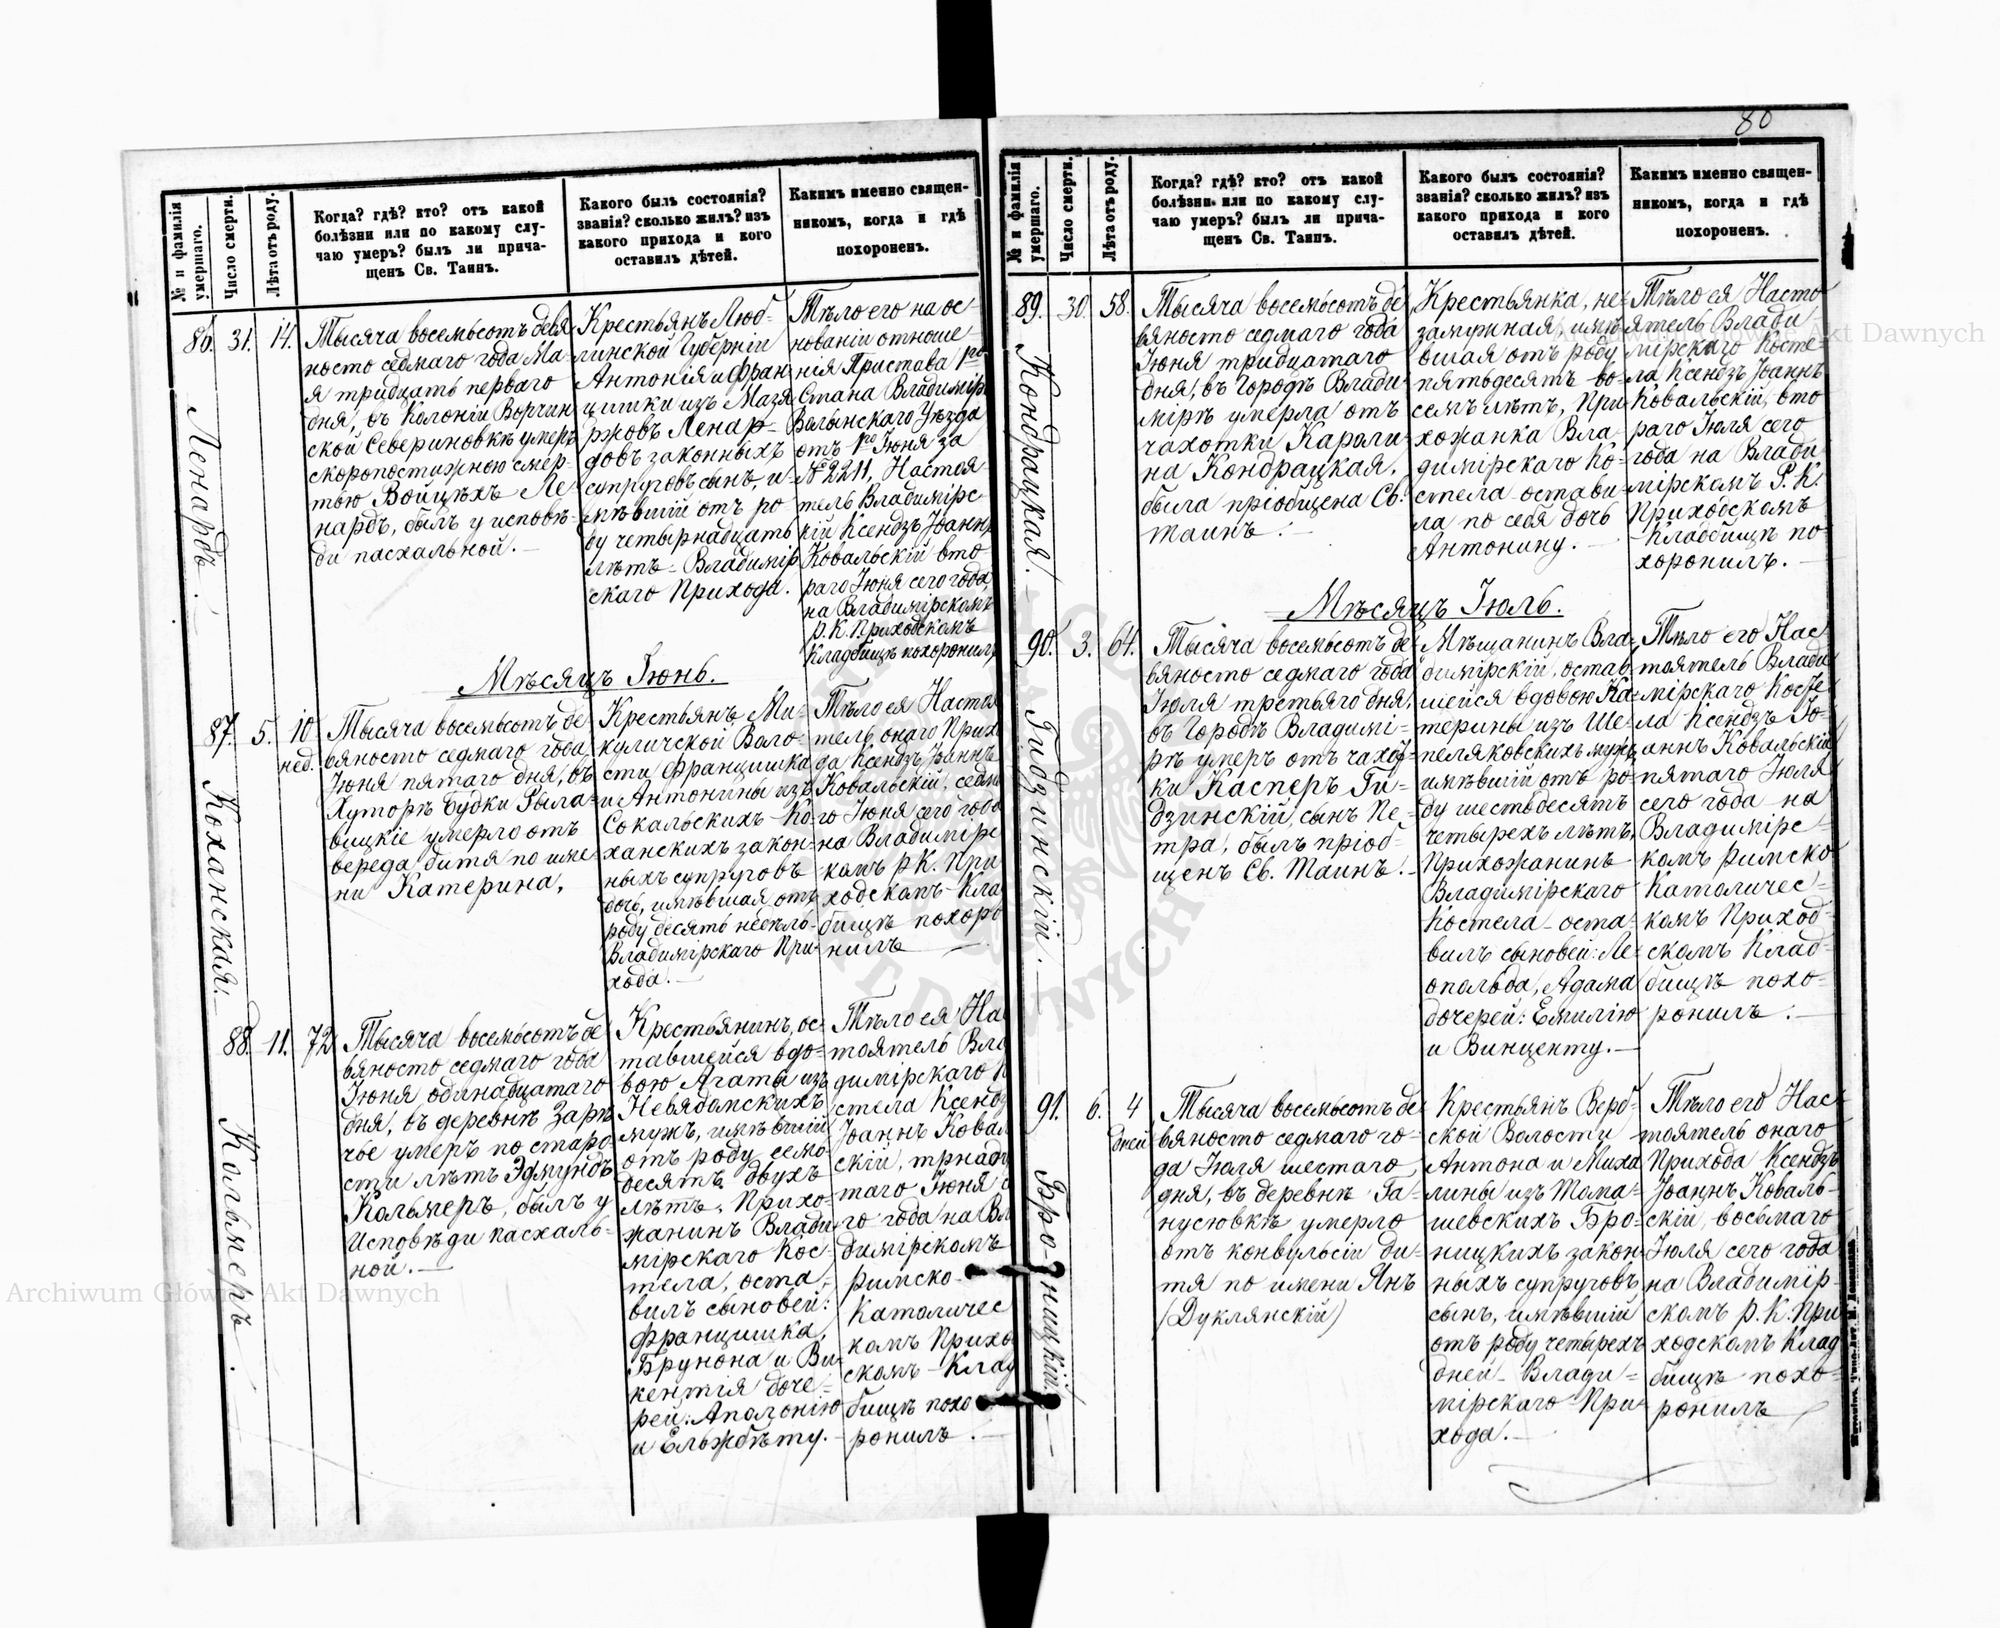 80
№ и фамилія умершаго.
Число смерти.
Лѣта отъ роду.
Когда? гдѣ? кто? отъ какой
болѣзни или по какому слу-
чаю умеръ? былъ ли прича-
щенъ Св. Таинъ.
Какого былъ состоянія?
званія? сколько жилъ? изъ
какого прихода и кого
оставилъ дѣтей.
Какимъ именно священ-
никомъ, когда и гдѣ
похороненъ.
86.
31.
14.
Ленардъ.
Тысяча восемьсотъ девя
носто седмаго года Ма-
я тридцать перваго
дня, въ Колоніи Ворчин
ской Севериновкѣ умеръ
скоропостижною смер-
тью Войцѣхъ Ле-
нардъ, былъ у исповѣ-
ди пасхальной.
Крестьянъ Люб-
линской Губерніи
Антонія и Фран-
цишки изъ Мазя
ржовъ Ленар-
довъ законныхъ
супруговъ сынъ, и-
мѣвшій отъ ро-
ду четырнадцать
лѣтъ - Владимір
скаго Прихода.
Тѣло его на ос-
нованіи отноше-
нія Пристава 1го
Стана Владимір
Волынскаго Уѣзда
отъ 1го Іюня за
№ 2211, Настоя
тель Владимірс
кій Ксендзъ Іоаннъ
Ковальскій вто
раго Іюня сего года,
на Владимірскомъ
Р. К. Приходскомъ
Кладбищѣ похоронилъ
Мѣсяцъ Іюнь.
87.
5.
10
нед.
Коханская.
Тысяча восемьсотъ де-
вяносто седмаго года
Іюня пятаго дня, въ
Хуторѣ Будки Рыла-
вицкіе умерло отъ
вереда дитя по име-
ни Катерина,
Крестьянъ Ми-
куличской Воло-
сти Францишка
и Антонины изъ
Сокальскихъ - Ко-
ханскихъ закон-
ныхъ супруговъ
дочь, имѣвшая отъ
роду десять недѣль-
Владимірскаго При-
хода.
Тѣло ея Настоя
тель онаго Прихо
да Ксендзъ Іоаннъ
Ковальскій, седма
го Іюня сего года
на Владимірс
комъ Р. К. При
ходскомъ Кла
бищѣ похоро
нилъ
88.
11.
72
Кольмеръ.
Тысяча восемьсотъ де
вяносто седмаго года
Іюня одинадцатаго
дня, въ деревнѣ Зарѣ
чье умеръ по старо
сти лѣтъ Эдмундъ
Кольмеръ, былъ у
Исповѣди пасхаль-
ной.
Крестьянинъ, ос-
тавшейся вдо-
вою Агаты изъ
Невядомскихъ
мужъ, имѣвшій
отъ роду семь
десятъ двухъ
лѣтъ, Прихо-
жанинъ Влади
мірскаго Кос-
тела, оста-
вилъ сыновей:
Францишка,
Брунона и Ви-
кентія доче-
рей: Аполонію
и Ельжбѣту.
Тѣло ея На
тоятель Вла
димірскаго К
стела Ксендз
Іоаннъ Ковал
скій, тринад
таго Іюня с
го года на Вл
димірскомъ
римско-
Католичес
комъ Прихо
скомъ - Клад
бищѣ похо
ронилъ.
№ и фамилія умершаго.
Число смерти.
Лѣта отъ роду.
Когда? гдѣ? кто? отъ какой
болѣзни или по какому слу-
чаю умеръ? былъ ли прича-
щенъ Св. Таинъ.
Какого былъ состоянія?
званія? сколько жилъ? изъ
какого прихода и кого
оставилъ дѣтей.
Какимъ именно священ-
никомъ, когда и гдѣ
похороненъ.
89.
30.
58.
Кондрацкая.
Тысяча восемьсотъ де
вяносто седмаго года
Іюня тридцатаго
дня, въ Городѣ Влади-
мірѣ умерла отъ
чахотки Кароли-
на Кондрацкая,
была пріобщена Св.
Таинъ.
Крестьянка, не-
замужная, имѣ
вшая отъ роду
пятьдесятъ во-
семь лѣтъ, При-
хожанка Вла-
димірскаго Ко-
стела остави-
ла по себя дочь
Антонину.
Тѣло ея Насто
ятель Влади
мірскаго Косте
ла Ксендзъ Іоаннъ
Ковальскій, вто
раго Іюля сего
года на Влади
мірскомъ Р. К.
Приходскомъ
Кладбищѣ по-
хоронилъ.
Мѣсяцъ Іюль.
90.
3.
64.
Гидзинскій.
Тысяча восемьсотъ де-
вяносто седмаго года
Іюля третьяго дня,
въ Городѣ Владимі-
рѣ умеръ отъ чахот-
ки Касперъ Ги-
дзинскій, сынъ Пе-
тра, былъ пріоб-
щенъ Св. Таинъ.
Мѣщанинъ Вла-
димірскій, остав-
шейся вдовою Ка-
терины изъ Ше-
пеляковскихъ мужъ,
имѣвшій отъ ро-
ду шестьдесятъ
четырехъ лѣтъ,
Прихожанинъ
Владимірскаго
Костела - оста-
вилъ сыновей: Ле-
опольда, Адама
дочерей: Емилію
и Винценту.
Тѣло его Нас-
тоятель Влади
мірскаго Косте
ла Ксендзъ Іо-
аннъ Ковальскій
пятаго Іюля
сего года на
Владимірс-
комъ Римско
Католичес-
комъ Приход-
скомъ Клад-
бищѣ похо-
ронилъ.
91.
6.
4
дней
Броницкій.
Тысяча восемьсотъ де-
вяносто седмаго го-
да Іюля шестаго
дня, въ деревнѣ Га-
нусювкѣ умерло
отъ конвульсіи ди-
тя по имени Янъ
(Дуклянскій)
Крестьянъ Верб-
ской Волости
Антона и Миха
лины изъ Тома-
шевскихъ Бро-
ницкихъ закон-
ныхъ супруговъ
сынъ, имѣвшій
отъ роду четырехъ
дней - Влади-
мірскаго При-
хода.
Тѣло его Нас-
тоятель онаго
Прихода Ксендзъ
Іоаннъ Коваль-
скій, восьмаго
Іюля сего года
на Владимір-
скомъ Р. К. При
ходскомъ Клад
бищѣ похо-
ронилъ
Archiwum Główne Akt Dawnych
Akt Dawnych